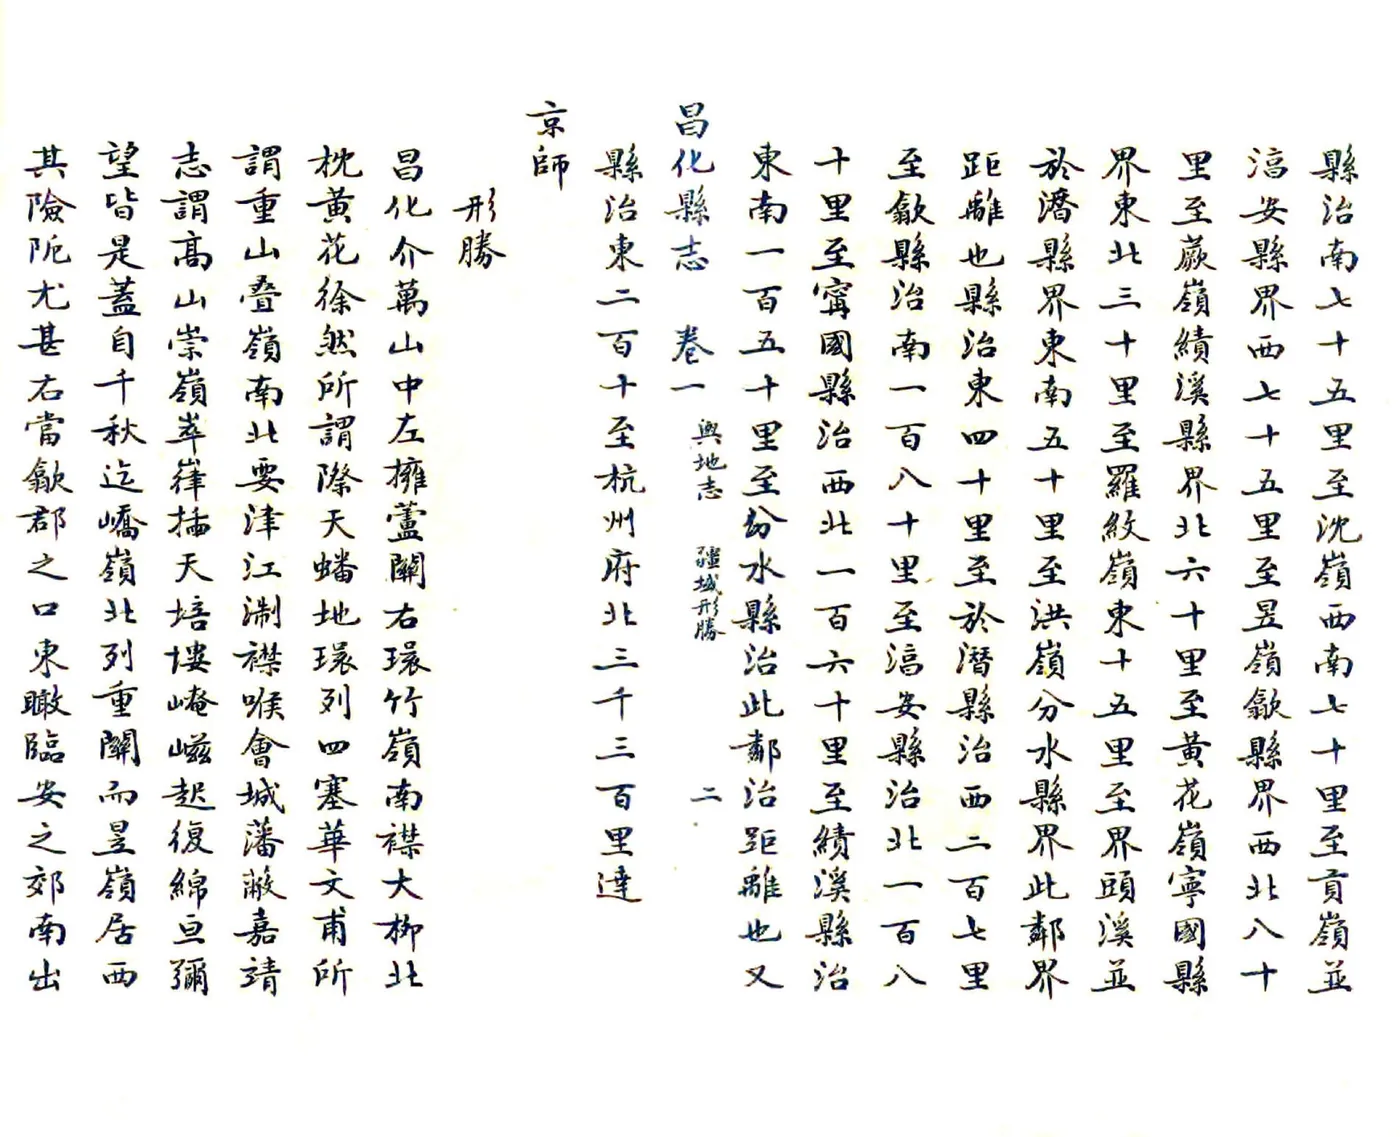 縣治南七十五里至沈嶺西南七十里至貢嶺並
淯安縣界西七十五里至昱嶺歙縣界西北八十
里至蕨嶺績溪縣界北六十里至黃花嶺寧國縣
界東北三十里至羅紋嶺東十五里至界頭溪並
於潛縣界東南五十里至洪嶺分水縣界此鄰界
距離也縣治東四十里至於潛縣治西二百七里
至歙縣治南一百八十里至淯安縣治北一百八
十里至甯國縣治西北一百六十里至績溪縣治
東南一百五十里至分水縣治此鄰治距離也又
昌化縣志 卷一 輿地志 疆域形勝 二
縣治東二百十至杭州府北三千三百里達
京師
形勝
昌化介萬山中左擁蘆關右環竹嶺南襟大柳北
枕黃花徐然所謂際天蟠地環列四塞華文甫所
謂重山疊嶺南北要津江淛襟喉會城藩蔽嘉靖
志謂高山崇嶺崒嵂插天培塿崦嵫起復綿亘彌
望皆是蓋自千秋迄嶠嶺北列重關而昱嶺居西
其險阨尤甚右當歙郡之口東瞰臨安之郊南出